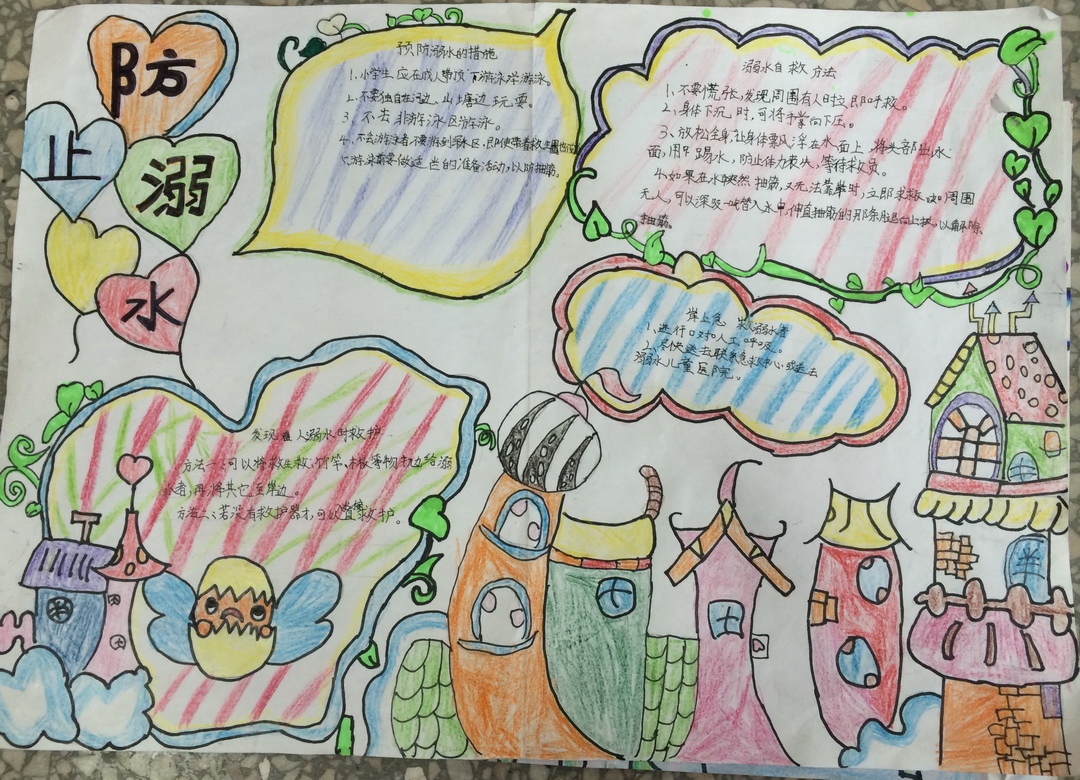 防
止
溺
水
预防溺水的措施
1.小学生应在成人带领下游泳学游泳。
2.不要独自在河边、山塘边玩耍。
3、不去非游泳区游泳。
4、不会游泳者,不要游到深水区,即使带着救生圈也
游泳前要做适当的准备活动,以防抽筋。
溺水自救方法
1、不要慌张,发现周围有人时立即呼救。
2、身体下沉时,可将手掌向下压。
3、放松全身,让身体飘浮在水面上,将头部出水
面,用脚踢水,防止体力丧失,等待救员。
4.如果在水中突然抽筋,又无法靠岸时,立即求救。如周围
无人,可以深吸一口气潜入水中,伸直抽筋的那条腿
以解除
抽筋。
岸上急救溺水者
1、进行口对口人工呼吸。
2、尽快送去联系急救中心或送去
溺水儿童医院。
发现 人溺水时救护
方法一、可以将救生救、竹竿、木板等物抛给溺
水者,再将其它至岸边。
方法二、若没有救护器才,可以 救护。